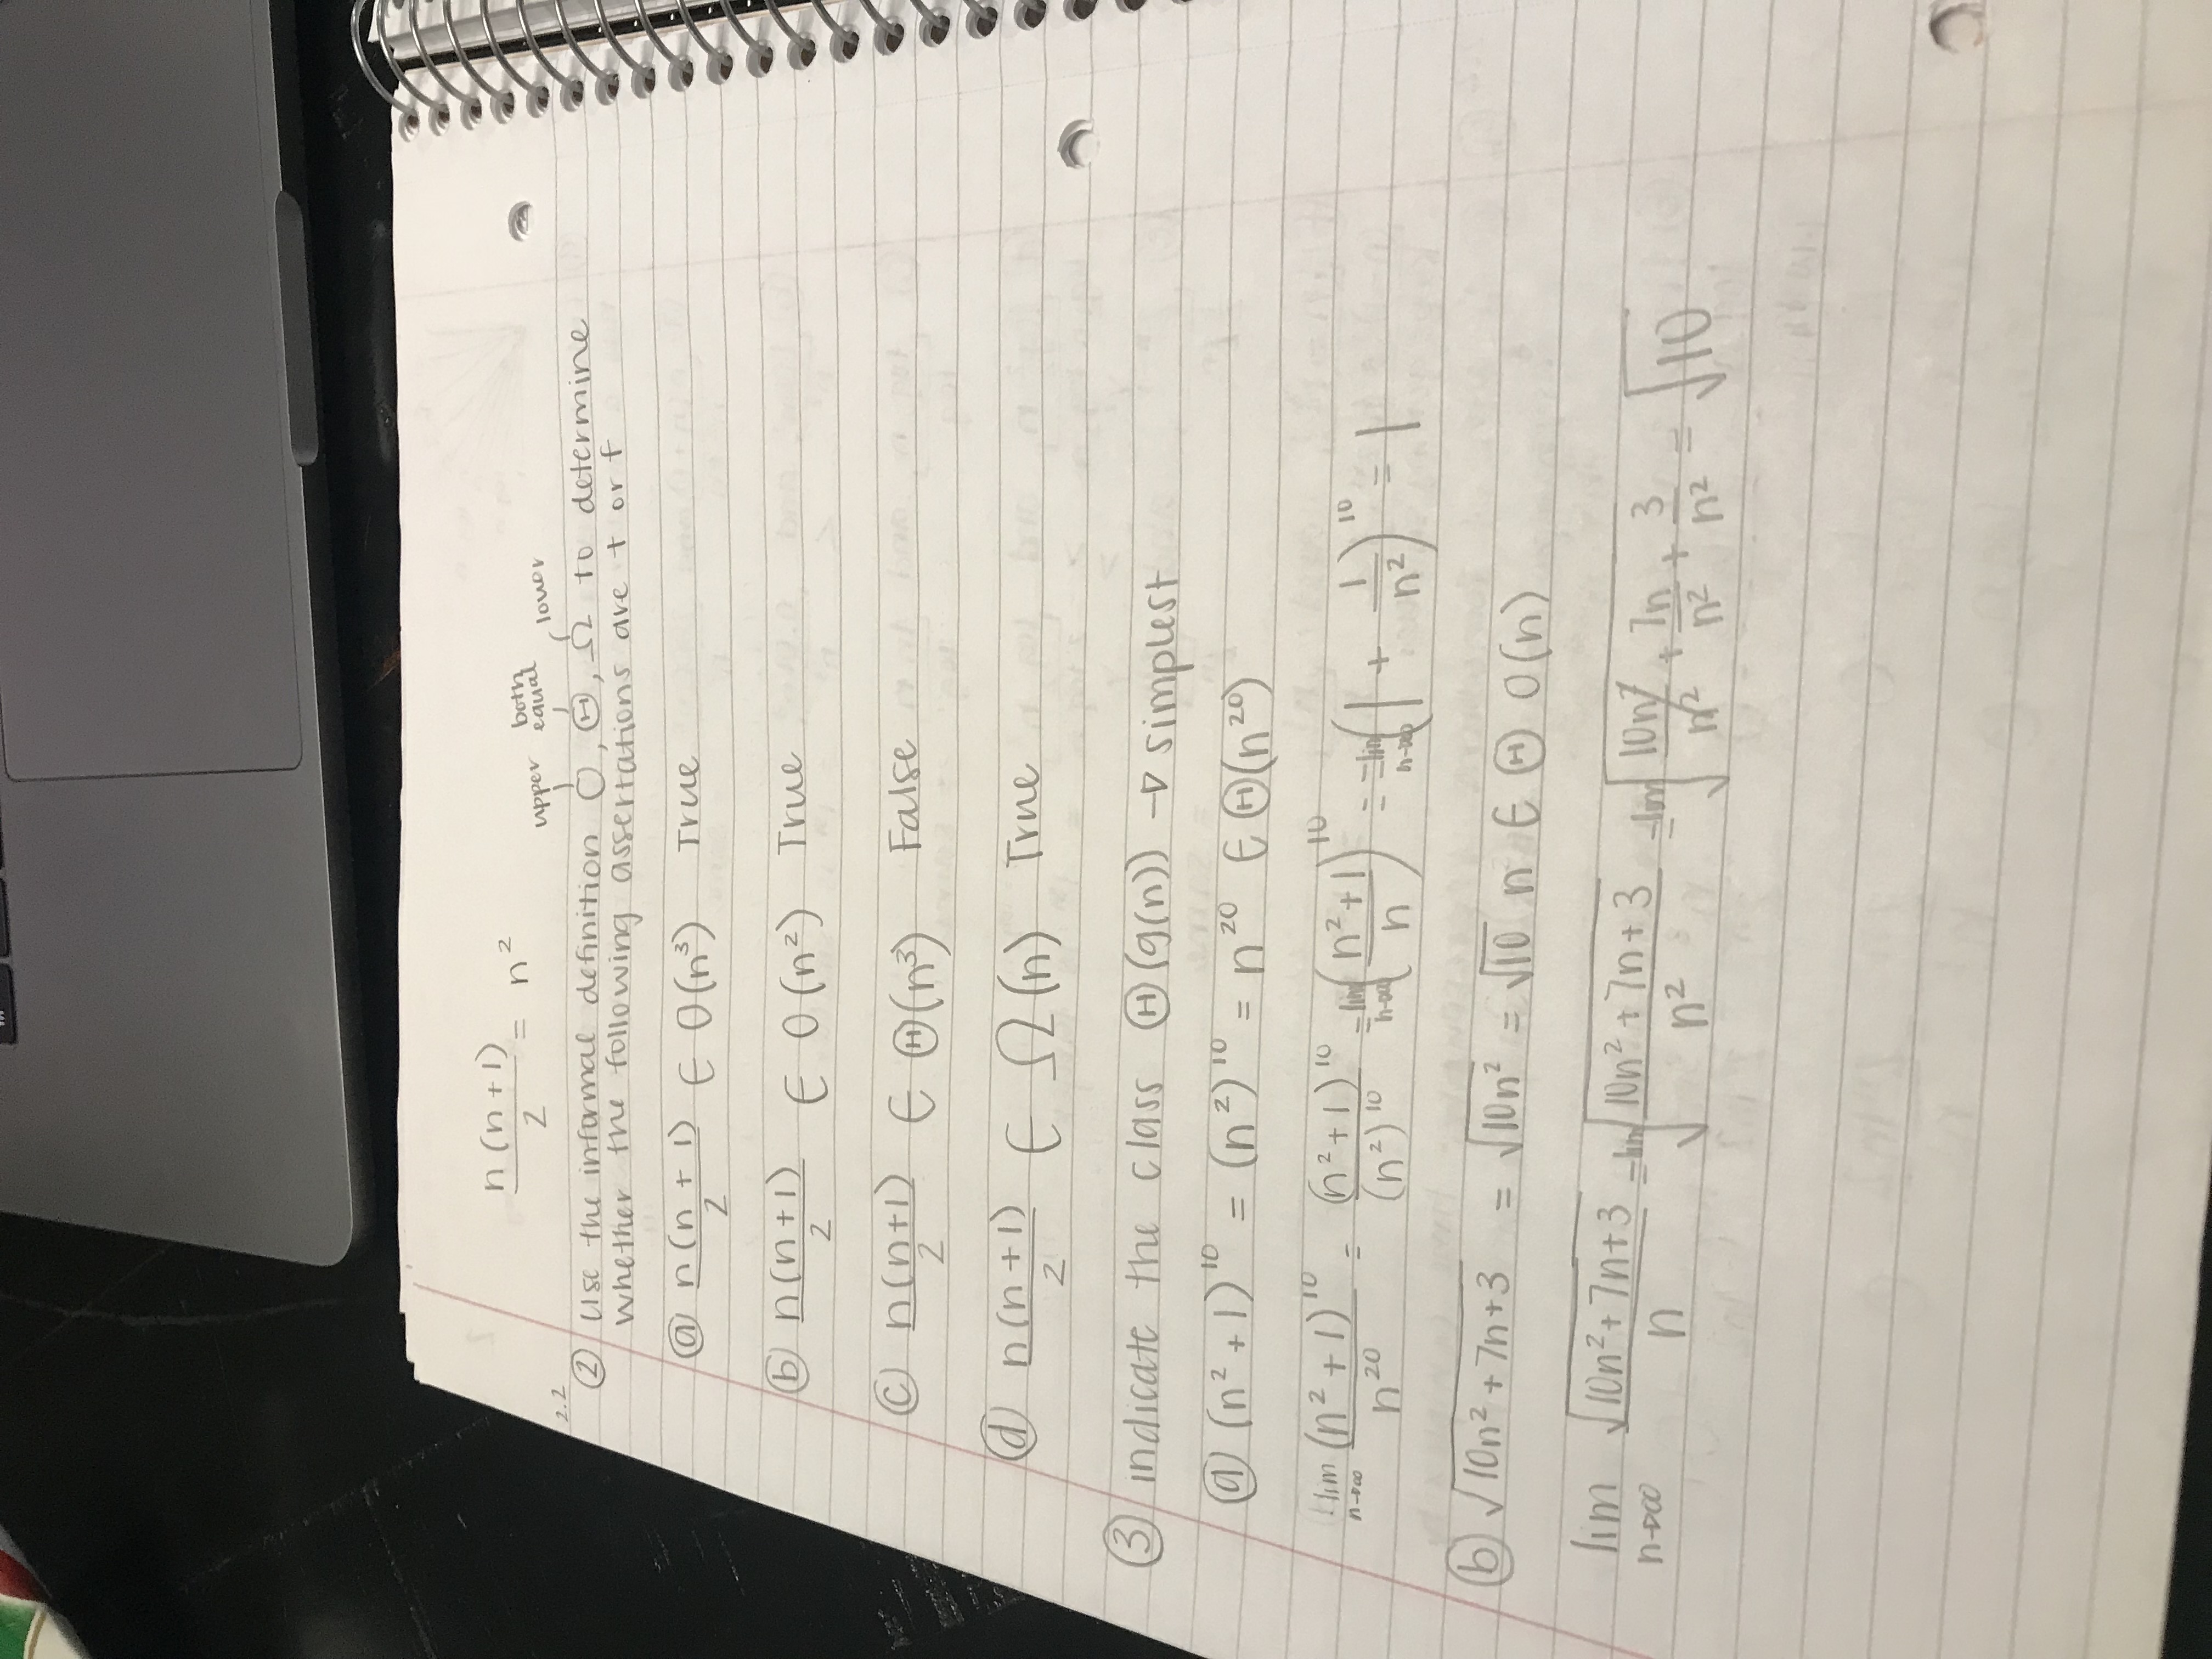 n(n+1)/2 = n²
upper both equal lower
2.2
② Use the informal definition O, Θ, Ω to determine
whether the following assertations are t or f
ⓐ n(n+1)/2 ∈ O(n³) True
ⓑ n(n+1)/2 ∈ O(n²) True
ⓒ n(n+1)/2 ∈ Θ(n³) False
ⓓ n(n+1)/2 ∈ Ω(n) True
③ indicate the class Θ(g(n)) → simplest
ⓐ (n²+1)¹⁰ = (n²)¹⁰ = n²⁰ ∈ Θ(n²⁰)
lim n→∞ (n²+1)¹⁰/n²⁰ = (n²+1)¹⁰/(n²)¹⁰ = lim n→∞ ((n²+1)/n)¹⁰ = = lim n→∞ (1 + 1/n²)¹⁰ = 1
ⓑ √(10n²+7n+3) = √(10n²) = √10 n ∈ Θ O(n)
lim n→∞ √(10n²+7n+3)/n = lim √((10n²+7n+3)/n²) = lim √(10n²/n² + 7n/n² + 3/n²) = √10